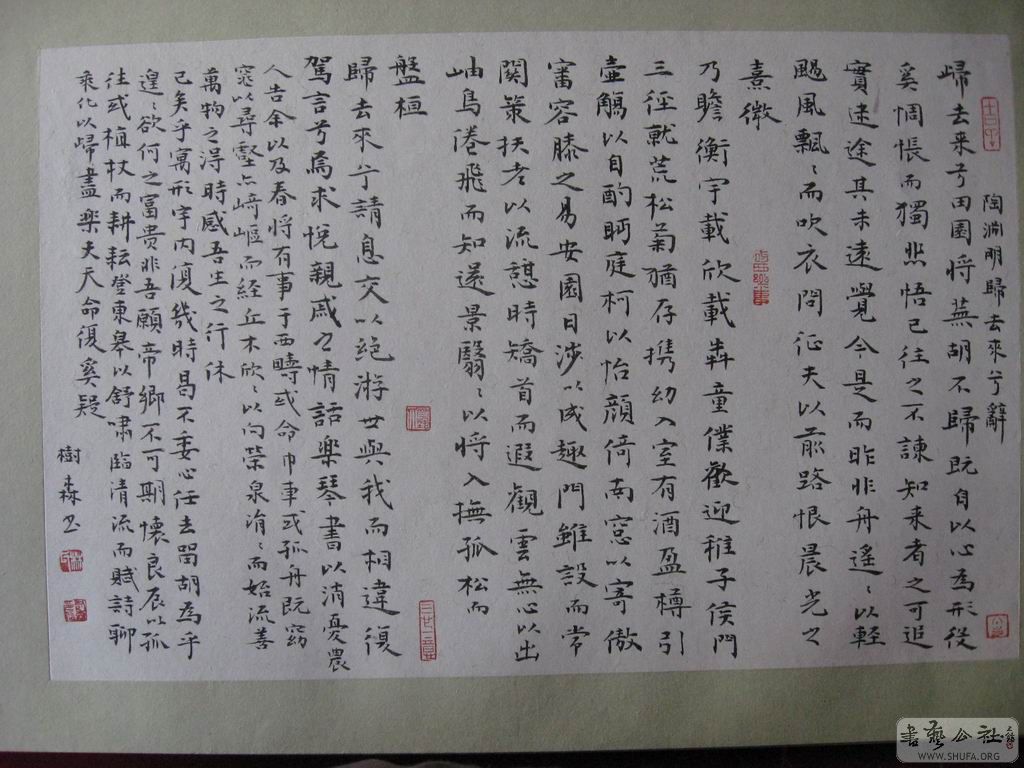 陶淵明歸去來兮辭
歸去来兮田園将蕪胡不歸既自以心為形役
奚惆悵而獨悲悟已往之不諫知来者之可追
實迷途其未遠覺今是而昨非舟遙〻以輕
颺風飄〻而吹衣問征夫以前路恨晨光之
熹微
乃瞻衡宇載欣載犇童僕歡迎稚子侯門
三徑就荒松菊猶存携幼入室有酒盈樽引
壺觴以自酌眄庭柯以怡顔倚南窓以寄傲
審容膝之易安園日涉以成趣門雖設而常
関策扶老以流憩時矯首而遐觀雲無心以出
岫鳥倦飛而知還景翳〻以将入撫孤松而
盤桓
歸去來兮請息交以絶游世與我而相違復
駕言兮焉求悦親戚之情話楽琴書以消憂農
人告余以及春将有事于西疇或命巾車或孤舟既窈
窕以尋壑亦崎嶇而経丘木欣〻以向榮泉涓〻而始流善
萬物之得時感吾生之行休
已矣乎寓形宇内復幾時曷不委心任去留胡為乎
遑〻欲何之富贵非吾願帝鄉不可期懷良辰以孤
往或植杖而耕耘登東皋以舒嘯臨清流而賦詩聊
乘化以歸盡楽夫天命復奚疑
樹森书
書藝公社
WWW.SHUFA.ORG